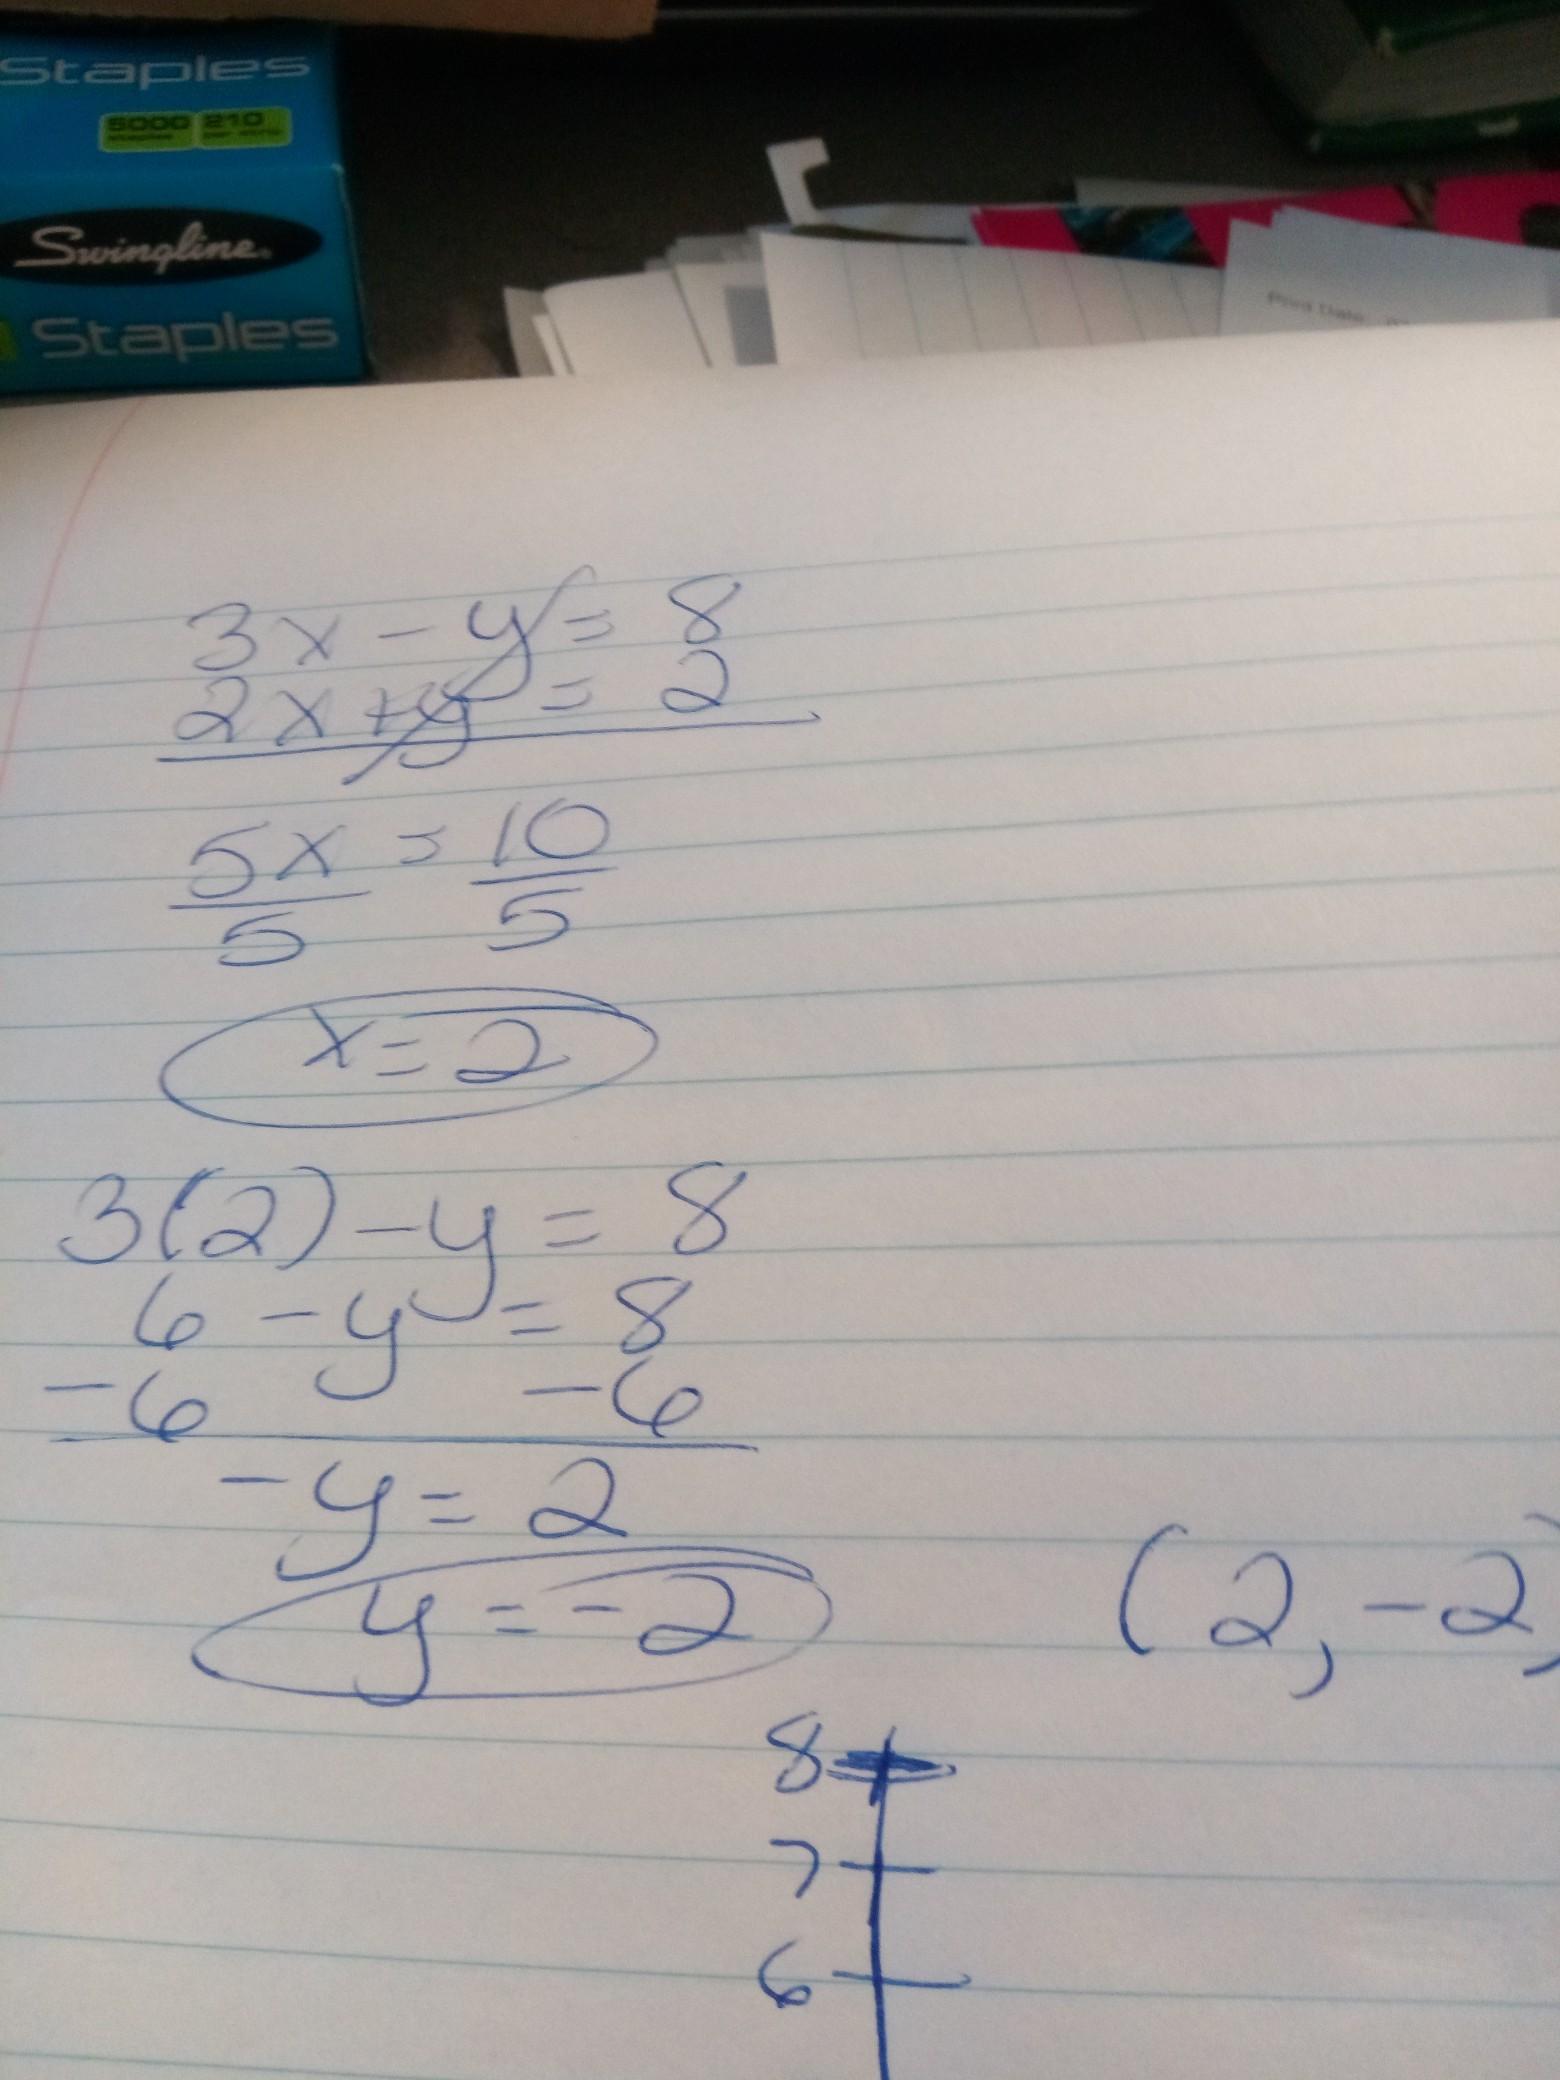 Staples
5000 210
staples
Swingline
Staples
Print Date
3x - y = 8
2x + y = 2
5x = 10
5 5
x = 2
3(2) - y = 8
6 - y = 8
-6 -6
-y = 2
y = -2
(2, -2)
8
7
6